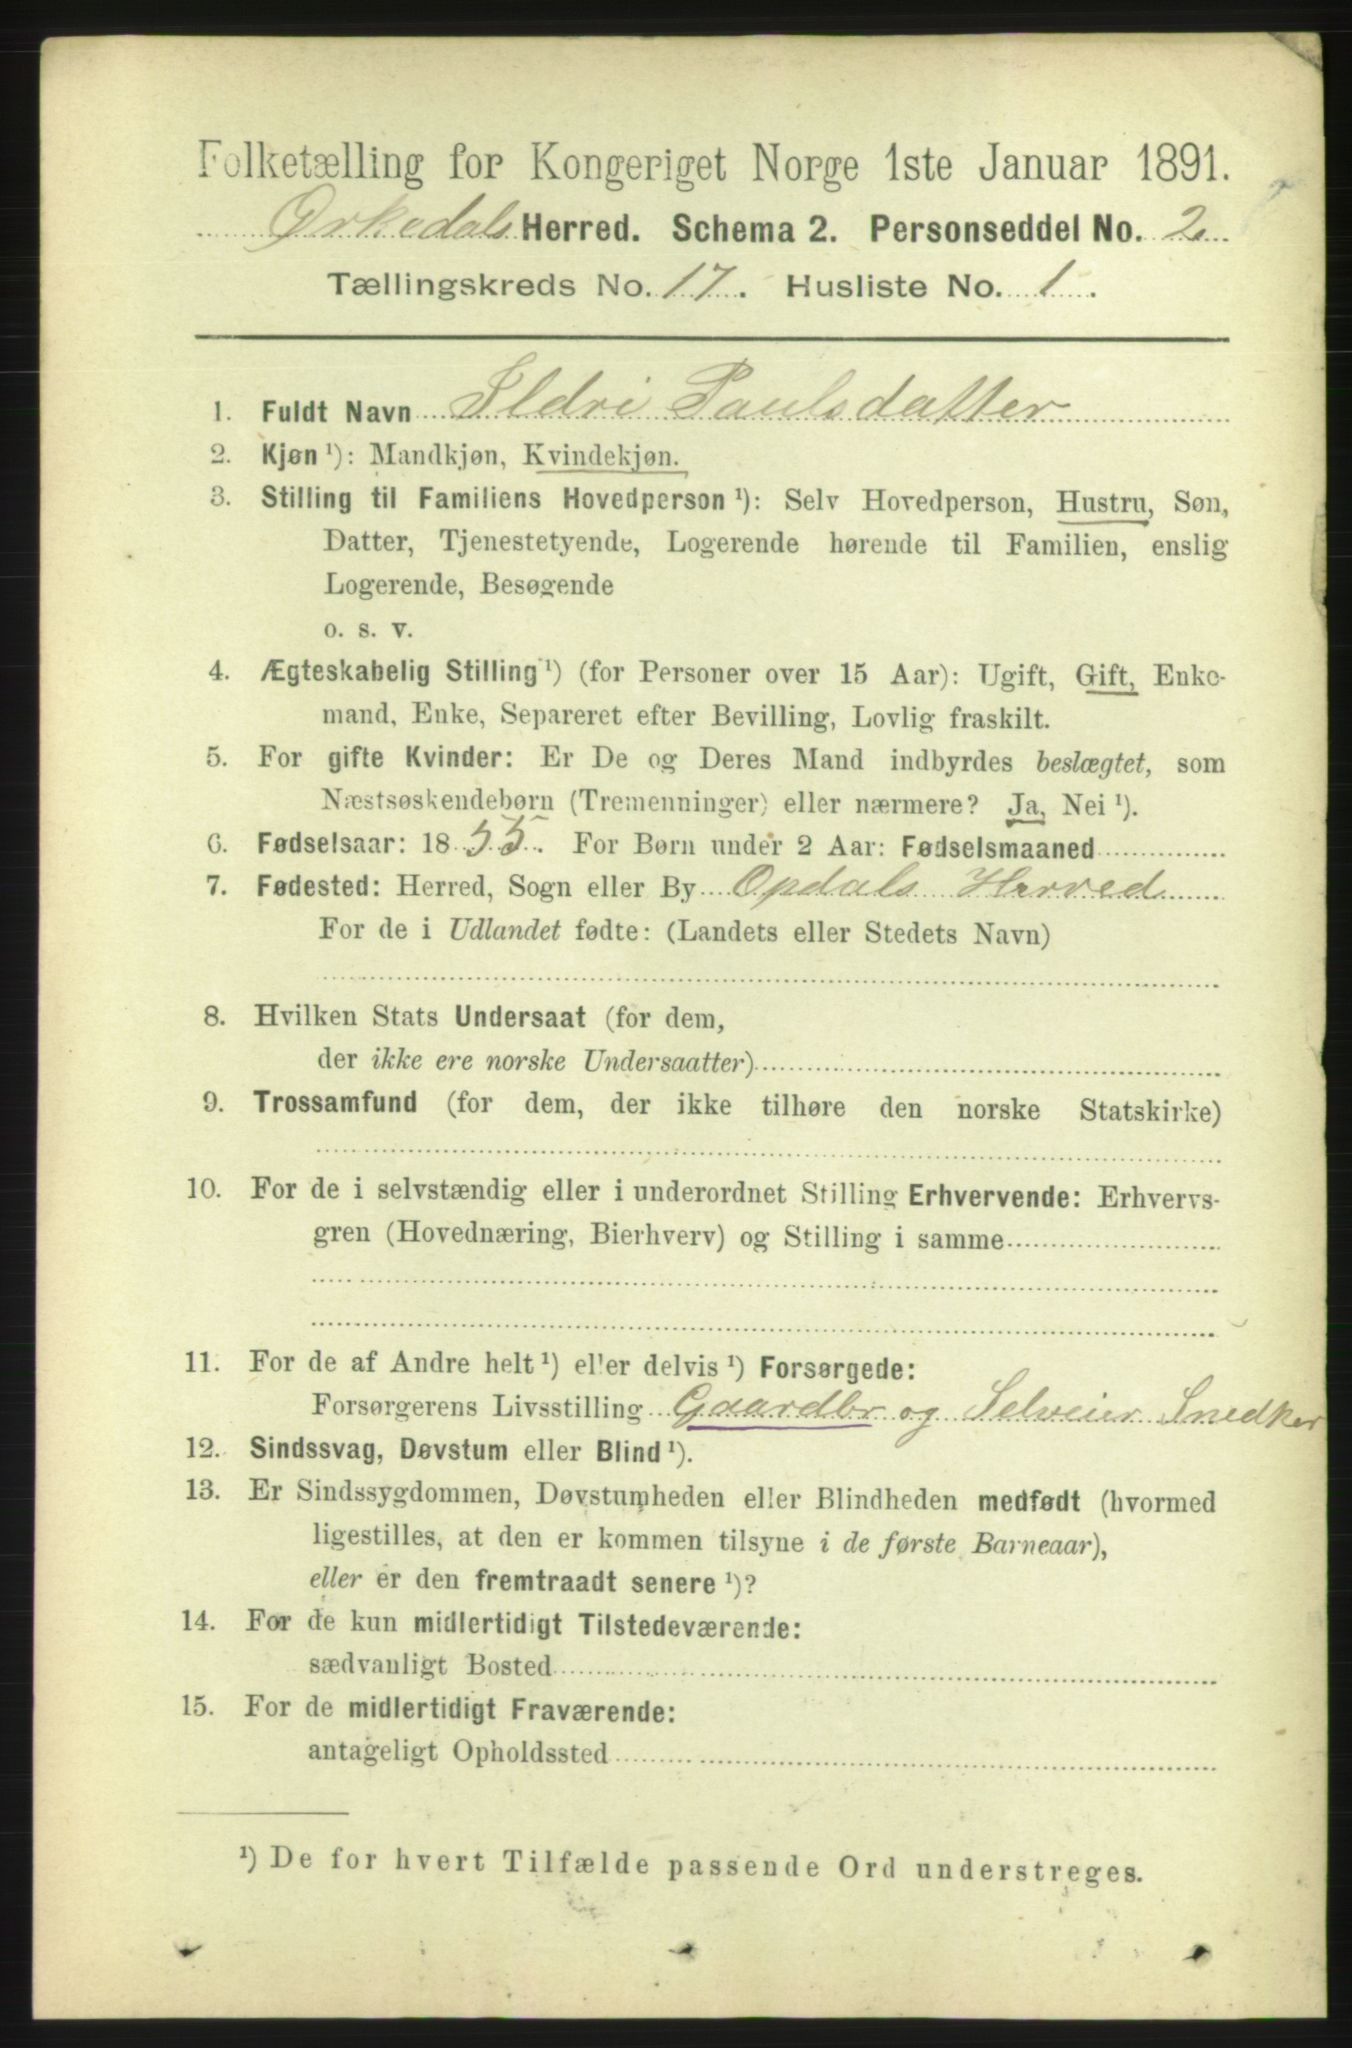 Folketælling for Kongeriget Norge 1ste Januar 1891.
Ørkedals Herred. Schema 2. Personseddel No. 2
Tællingskreds No. 17. Husliste No. 1.
1. Fuldt Navn Ildri Paulsdatter
2. Kjøn ¹): Mandkjøn, Kvindekjøn.
3. Stilling til Familiens Hovedperson ¹): Selv Hovedperson, Hustru, Søn,
Datter, Tjenestetyende, Logerende hørende til Familien, enslig
Logerende, Besøgende
o. s. v.
4. Ægteskabelig Stilling ¹) (for Personer over 15 Aar): Ugift, Gift, Enke-
mand, Enke, Separeret efter Bevilling, Lovlig fraskilt.
5. For gifte Kvinder: Er De og Deres Mand indbyrdes beslægtet, som
Næstsøskendebørn (Tremenninger) eller nærmere? Ja, Nei ¹).
6. Fødselsaar: 1855. For Børn under 2 Aar: Fødselsmaaned
7. Fødested: Herred, Sogn eller By Opdals Herred
For de i Udlandet fødte: (Landets eller Stedets Navn)
8. Hvilken Stats Undersaat (for dem,
der ikke ere norske Undersaatter)
9. Trossamfund (for dem, der ikke tilhøre den norske Statskirke)
10. For de i selvstændig eller i underordnet Stilling Erhvervende: Erhvervs-
gren (Hovednæring, Bierhverv) og Stilling i samme
11. For de af Andre helt ¹) eller delvis ¹) Forsørgede:
Forsørgerens Livsstilling Gaardbr og Selveier Snedker
12. Sindssvag, Døvstum eller Blind ¹).
13. Er Sindssygdommen, Døvstumheden eller Blindheden medfødt (hvormed
ligestilles, at den er kommen tilsyne i de første Barneaar),
eller er den fremtraadt senere ¹)?
14. For de kun midlertidigt Tilstedeværende:
sædvanligt Bosted
15. For de midlertidigt Fraværende:
antageligt Opholdssted
¹) De for hvert Tilfælde passende Ord understreges.